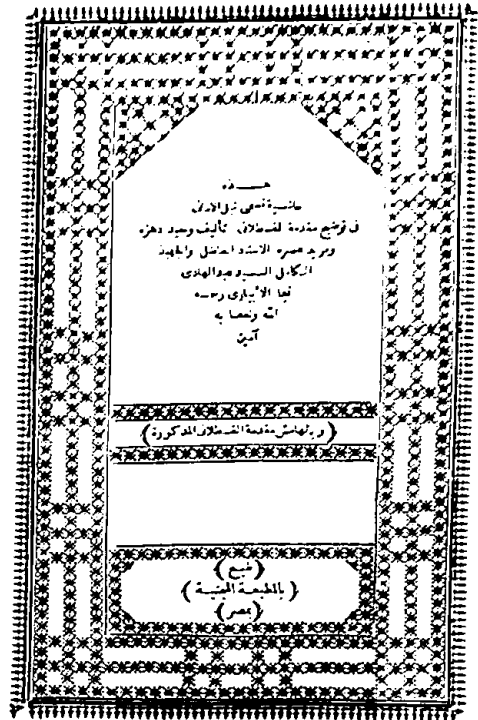 هـــــذه
حاشية تسمى نيل الاماني
فى توضيح مقدمة القسطلانى تأليف وحيد دهره
وفريد عصره الاستاذ الفاضل والجهبذ
الكامل السيد عبدالهادى
نجا الأبيارى رحمه
الله ونفعنا به
آمين
(وبالهامش مقدمة القسطلانى المذكورة)
(طبع)
(بالمطبعة الميمنية)
(بمصر)